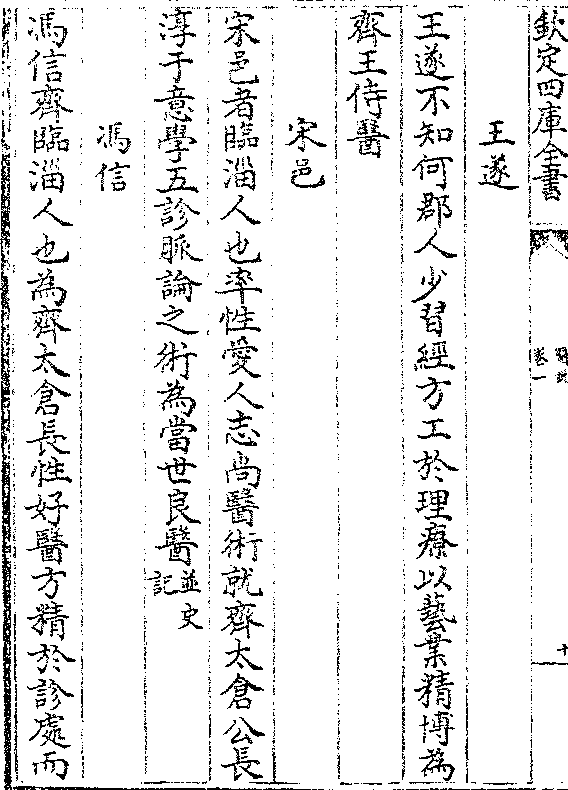 欽定四庫全書
醫說
卷一
十
王遂
王遂不知何郡人少習經方工於理療以藝業精博為
齊王侍醫
宋邑
宋邑者臨淄人也率性愛人志尚醫術就齊太倉公長
淳于意學五診脈論之術為當世良醫並史記
馮信
馮信齊臨淄人也為齊太倉長性好醫方精於診處而